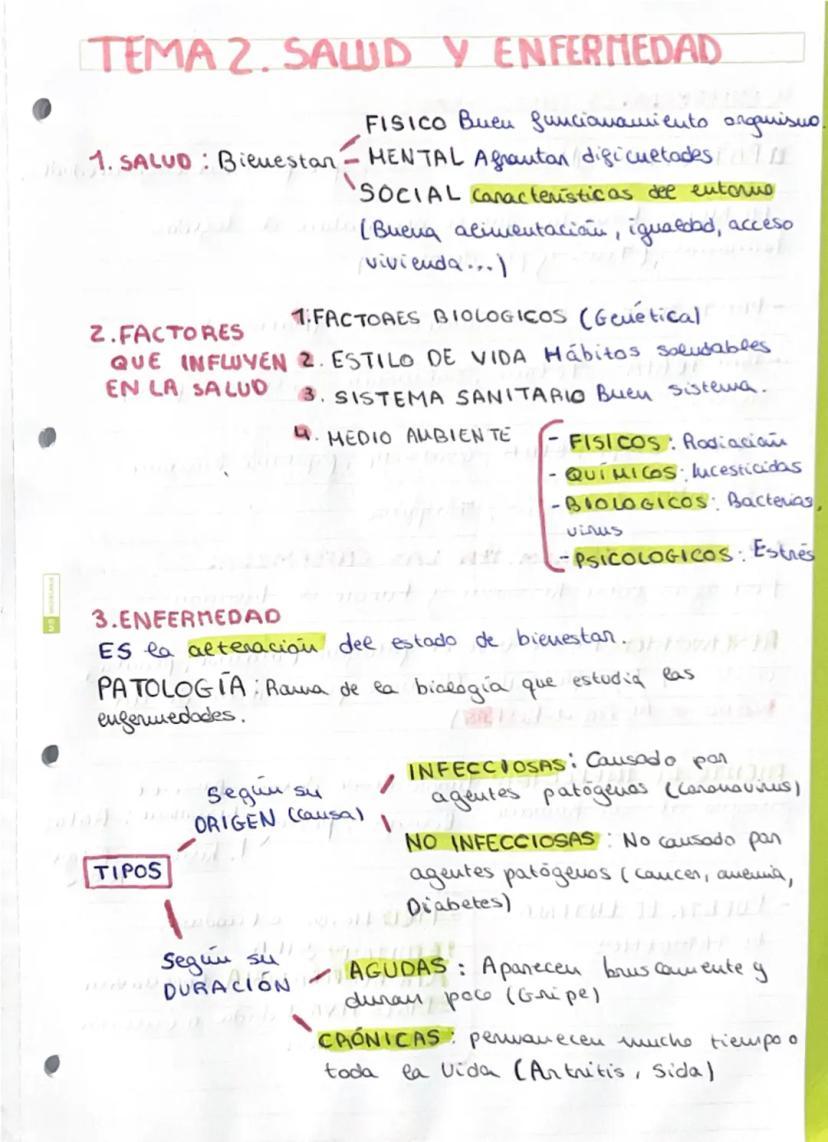 TEMA 2. SALUD Y ENFERMEDAD
FISICO Buen funcionamiento organismo.
1. SALUD : Bienestar - MENTAL Aguantar dificultades
SOCIAL Características del entorno
(Buena alimentación, igualdad, acceso
vivienda...)
2. FACTORES QUE INFLUYEN EN LA SALUD
1. FACTORES BIOLOGICOS (Genética)
2. ESTILO DE VIDA Hábitos saludables
3. SISTEMA SANITARIO Buen sistema.
4. MEDIO AMBIENTE
- FISICOS : Radiación
- QUÍMICOS : Incesticidas
- BIOLOGICOS : Bacterias,
virus
- PSICOLOGICOS : Estrés
3. ENFERMEDAD
ES la alteración del estado de bienestar.
PATOLOGÍA : Rama de la biología que estudia las
enfermedades.
TIPOS
Según su
ORIGEN (Causa)
INFECCIOSAS : Causado por
agentes patógenos (Coronavirus)
NO INFECCIOSAS : No causado por
agentes patógenos (cancer, anemia,
Diabetes)
Según su
DURACIÓN
AGUDAS : Aparecen bruscamente y
duran poco (Gripe)
CRÓNICAS : permanecen mucho tiempo o
toda la vida (Artritis, Sida)